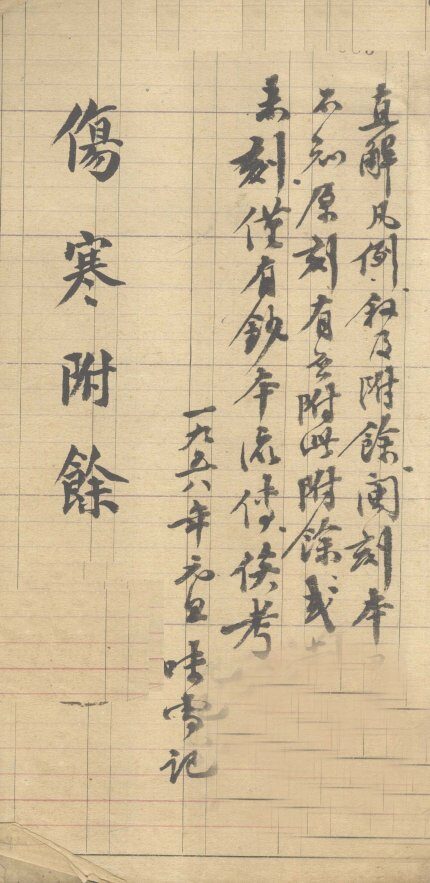 直解凡例·叙及附餘、閩刻本
不知原刻有無附此附餘、或
未刻、僅有鈔本流傳、俟考
一九五八年元旦 味雪記
傷寒附餘